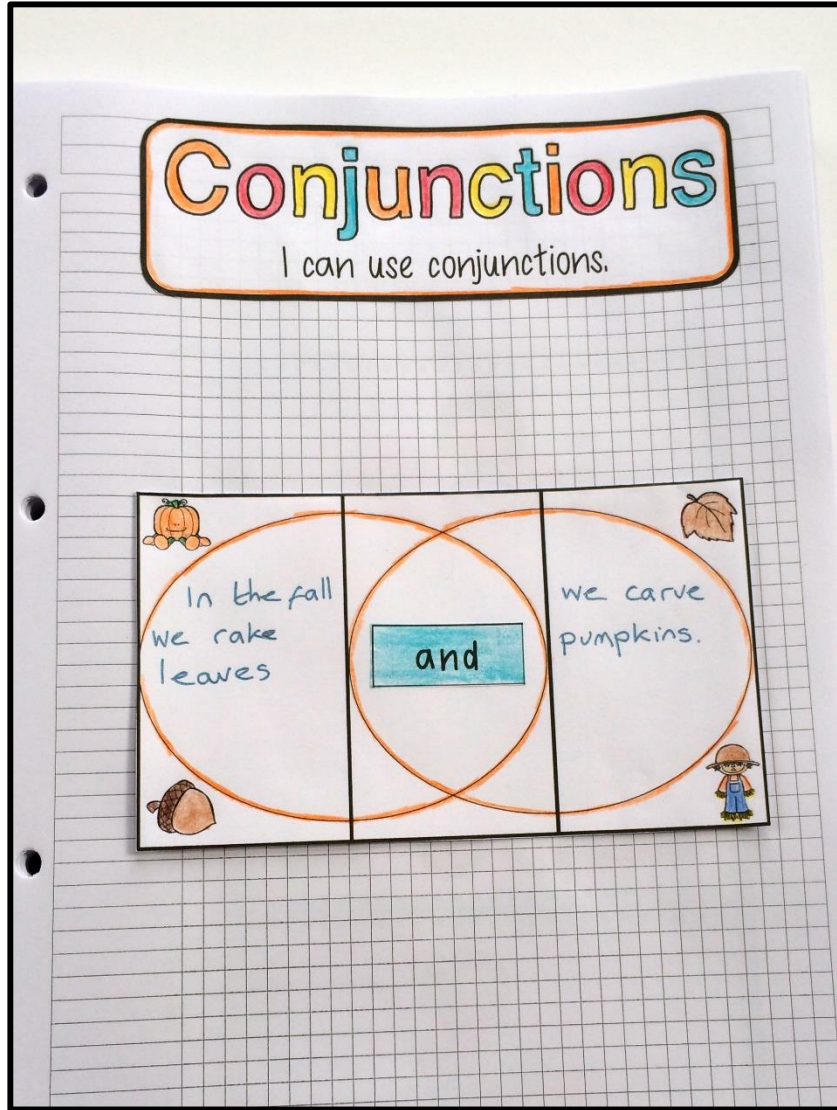 Conjunctions
I can use conjunctions.
In the fall
we rake
leaves
and
we carve
pumpkins.